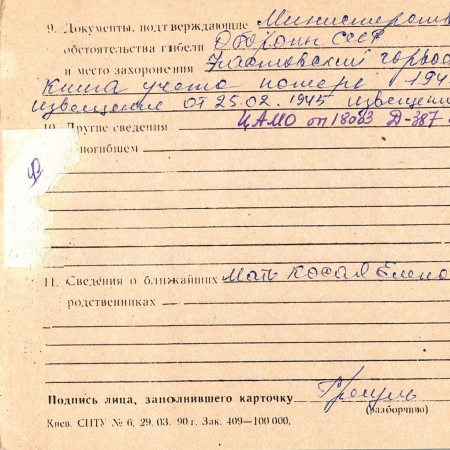 9. Документы, подтверждающие Министерство
обстоятельства гибели Обороны СССР
и место захоронения Фастовский горвое
Книга учета потерь 194
извещение от 25.02.1945 извещени
10. Другие сведения ЦАМО оп 18003 Д-387
погибшем
11. Сведения о ближайших Мать Косая Елена
родственниках
Подпись лица, заполнившего карточку
(разборчиво)
Киев. СПТУ № 6, 29. 03. 90 г. Зак. 409—100 000.